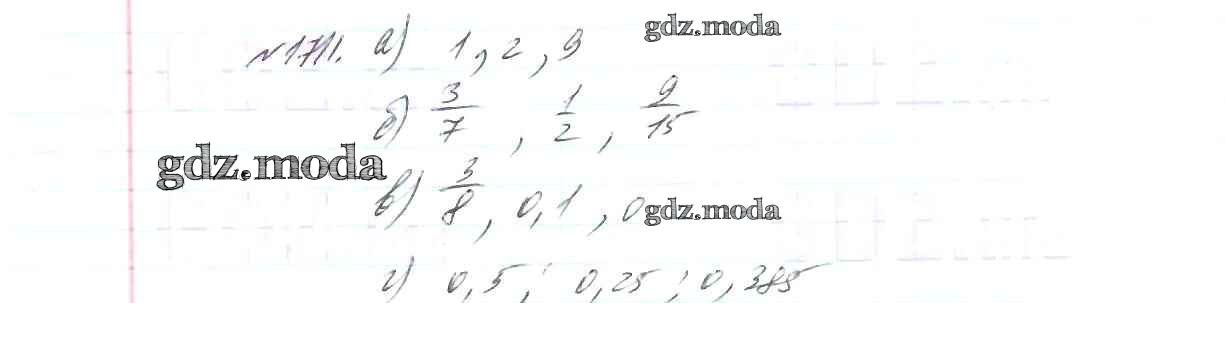 №1711. а) 1, 2, 9 gdz.moda
б) 3/7, 1/2, 9/15
gdz.moda
в) 3/8, 0,1, 0 gdz.moda
г) 0,5; 0,25; 0,385